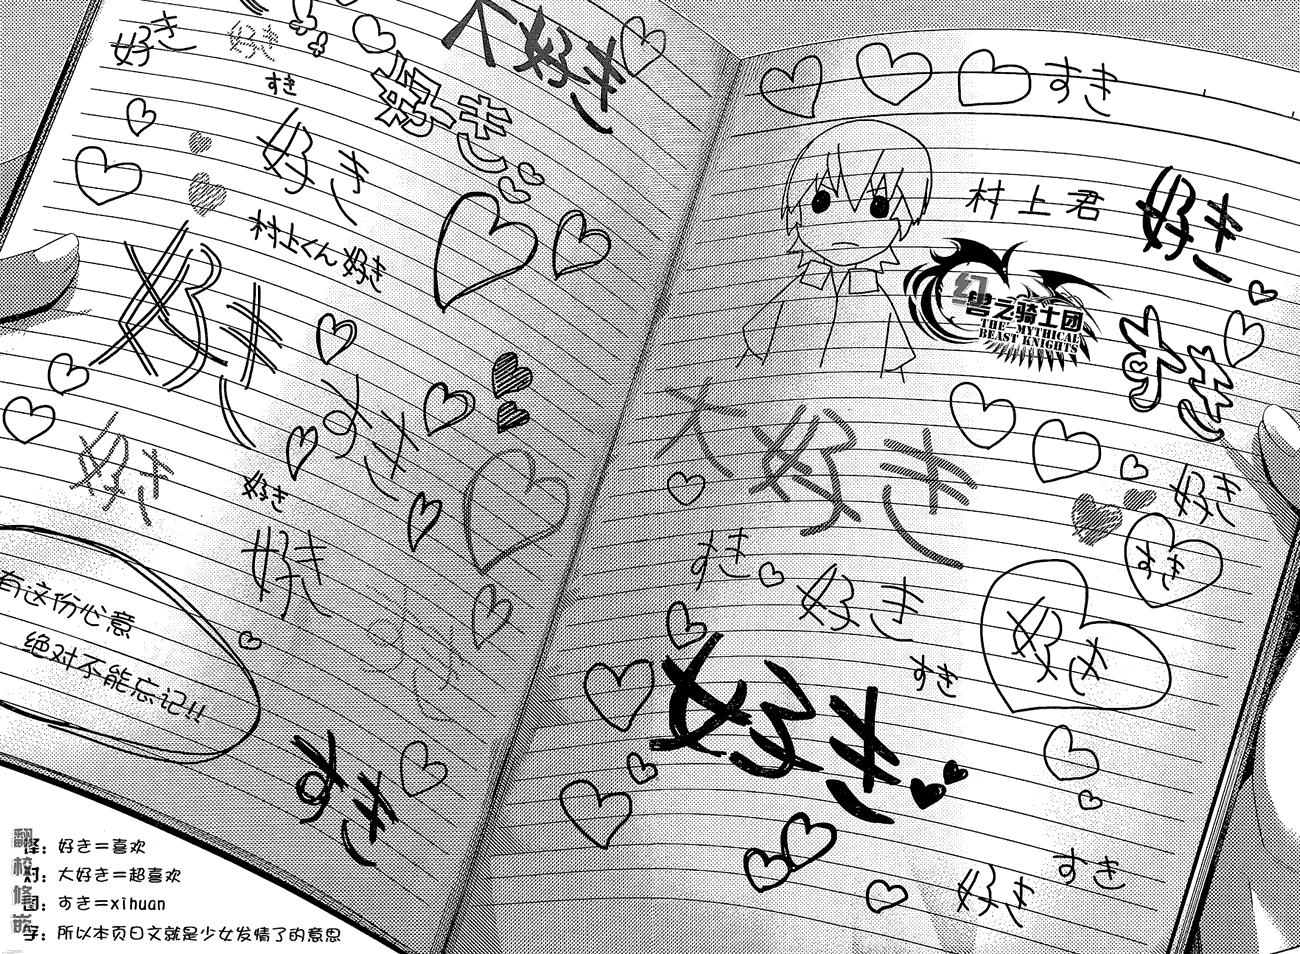 好き
好き
すき
大好き
好き
好き
村上くん 好き
好き
すき
好き
好き
好き
すき
有这份心意
绝对不能忘记!!
すき
村上君
好き
幻兽之骑士团
THE MYTHICAL
BEAST KNIGHTS
すき
大好き
好き
すき
すき
好き
好き
すき
好き
すき
好き
翻译：好き＝喜欢
校对：大好き＝超喜欢
修图：すき＝xihuan
嵌字：所以本页日文就是少女发情了的意思